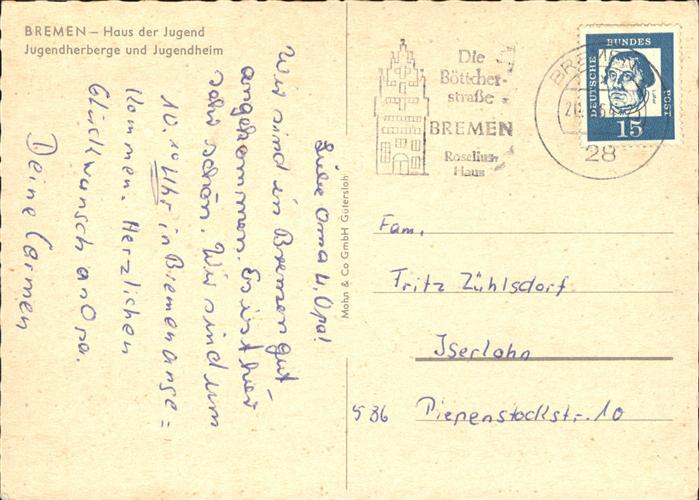 BREMEN – Haus der Jugend
Jugendherberge und Jugendheim
Liebe Oma u. Opa!
Wir sind in Bremen gut
angekommen. Es ist hier
sehr schön. Wir sind um
10.10 Uhr in Bremen ange=
kommen. Herzlichen
Glückwunsch an Opa.
Deine Carmen
Mohn & Co GmbH Gütersloh
Die
Böttcher-
straße
BREMEN
Roselius-
Haus
BREMEN
28
DEUTSCHE
BUNDES
POST
15
Fam.
Fritz Zühlsdorf
Iserlohn
586 Piepenstockstr. 10